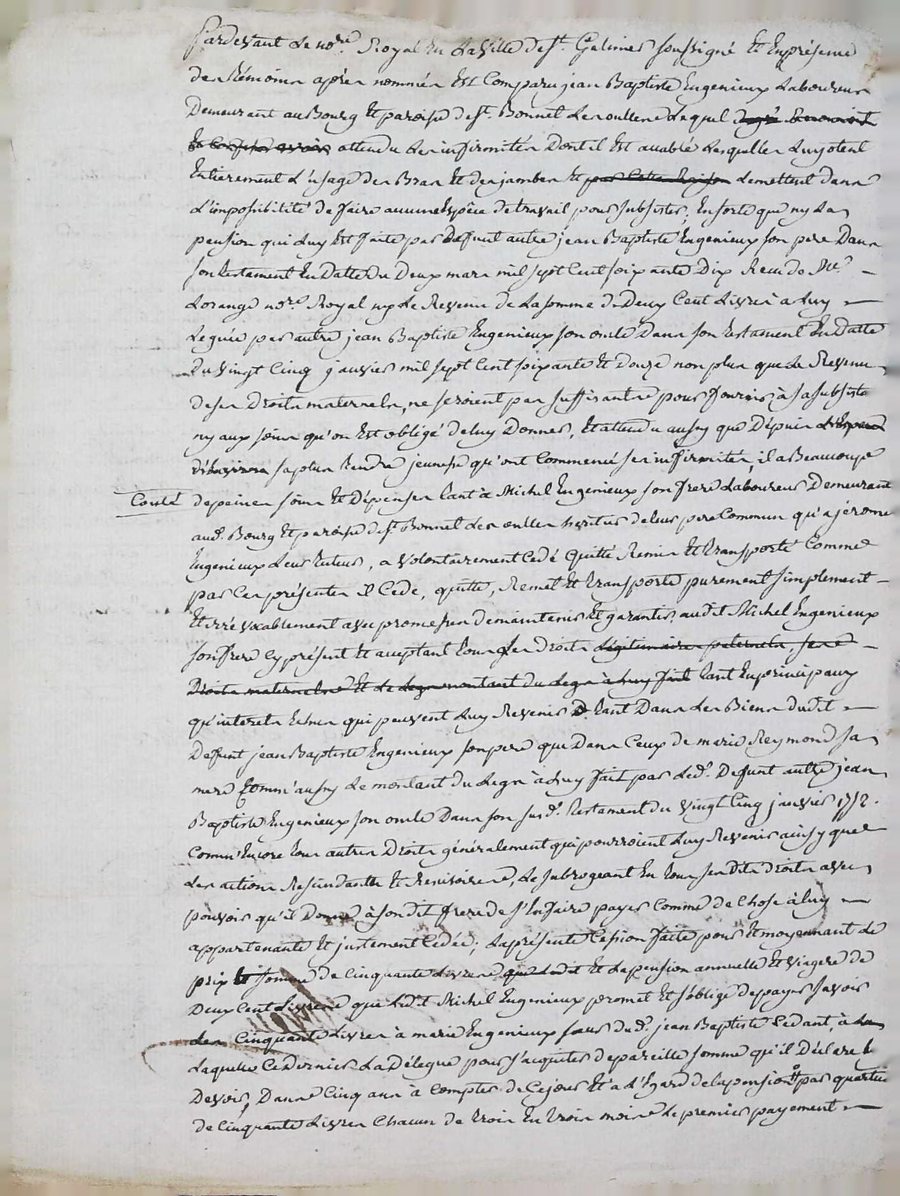 Pardevant Le no.re Royal En La Ville de St. Galmier soussigné Et En présence
des témoins après nommés Est Comparu jean Baptiste Eugenieux Laboureur
Demeurant au Bourg Et paroisse de St. Bonnet Les oulles Lequel
attendu Les infirmités Dont il Est accablé Lesquelles Luy otent
Entierement L'usage des Bras Et des jambes Et par Cette Raison Le mettent dans
L'impossibilité de faire aucune Espèce de travail pour subsister, En sorte que ny La
pension qui Luy Est faite par Defunt autre jean Baptiste Eugenieux son pere Dans
son testament En Datte du Deux mars mil sept Cent soixante Dix Recu de Me
Lorange no.re Royal ny Le Revenu de La somme de Deux Cent Livres à Luy
Leguée par autre jean Baptiste Eugenieux son oncle Dans son testament En Datte
du Vingt Cinq janvier mil sept Cent soixante Et douze non plus que Le Revenu
de ses Droits maternels, ne seroient pas suffisants pour fournir à sa subsista
ny aux soins qu'on Est obligé de Luy Donner, Et attendu aussy que Dépuis
sa plus tendre jeunesse qu'ont Commencé ses infirmités, il a Beaucoup
Couté de peines soins Et Dépenses tant à Michel Eugenieux son frere Laboureur Demeurant
aud. Bourg Et paroisse de St Bonnet Les oulles heritier de leur pere Commun qu'a jerome
Eugenieux Leur tuteur, a Volontairement Cedé Quitté Remis Et transporté Comme
par Ces présentes il Cede, quitte, Remet Et transporte purement simplement
Et irrévocablement avec promesses de maintenir Et garantir audit Michel Eugenieux
son frere Cy présent Et acceptant tous Les Droits Légitimaires paternels, ses
Droits maternels Et Le montant du Legs à Luy fait tant En principaux
qu'interets Echus qui peuvent Luy Revenir tant Dans Les Biens dudit
Defunt jean Baptiste Eugenieux son pere que Dans Ceux de marie Reymond sa
mere Comm'aussy Le montant du Legs à Luy fait par Led. Defunt autre jean
Baptiste Eugenieux son oncle Dans son susd. testament du Vingt Cinq janvier 1772.
Comm'Encore tous autres Droits généralement qui pourroient Luy Revenir ainsy que
Les actions Rescindantes Et Rescisoires, Le subrogeant En tous sesdits droits avec
pouvoir qu'il Donne à sondit frere de s'En faire payer Comme de Chose à Luy
appartenante Et justement Cédée; La présente Cession faite pour Et moyennant Le
prix Et somme de Cinquante Livres que Ledit Et La pension annuelle Et Viagere de
Deux Cent Livres que Ledit Michel Eugenieux promet Et s'oblige de payer savoir
Les Cinquante Livres à marie Eugenieux sœur dud. jean Baptiste Cedant, à
Laquelle Ce Dernier La Délegue pour s'acquiter de pareille somme qu'il Déclare Lu
Devoir, Dans Cinq ans à Compter de Ce jour Et a L'Egard de La pension par quartier
de Cinquante Livres Chacun de trois En trois mois Le premier payement